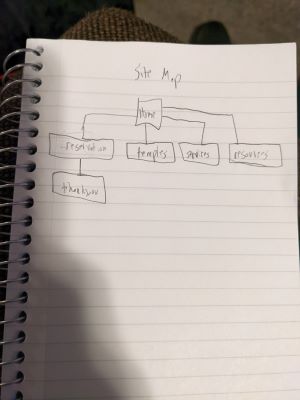 Site Map
Home
reservation
temples
services
resources
thankyou